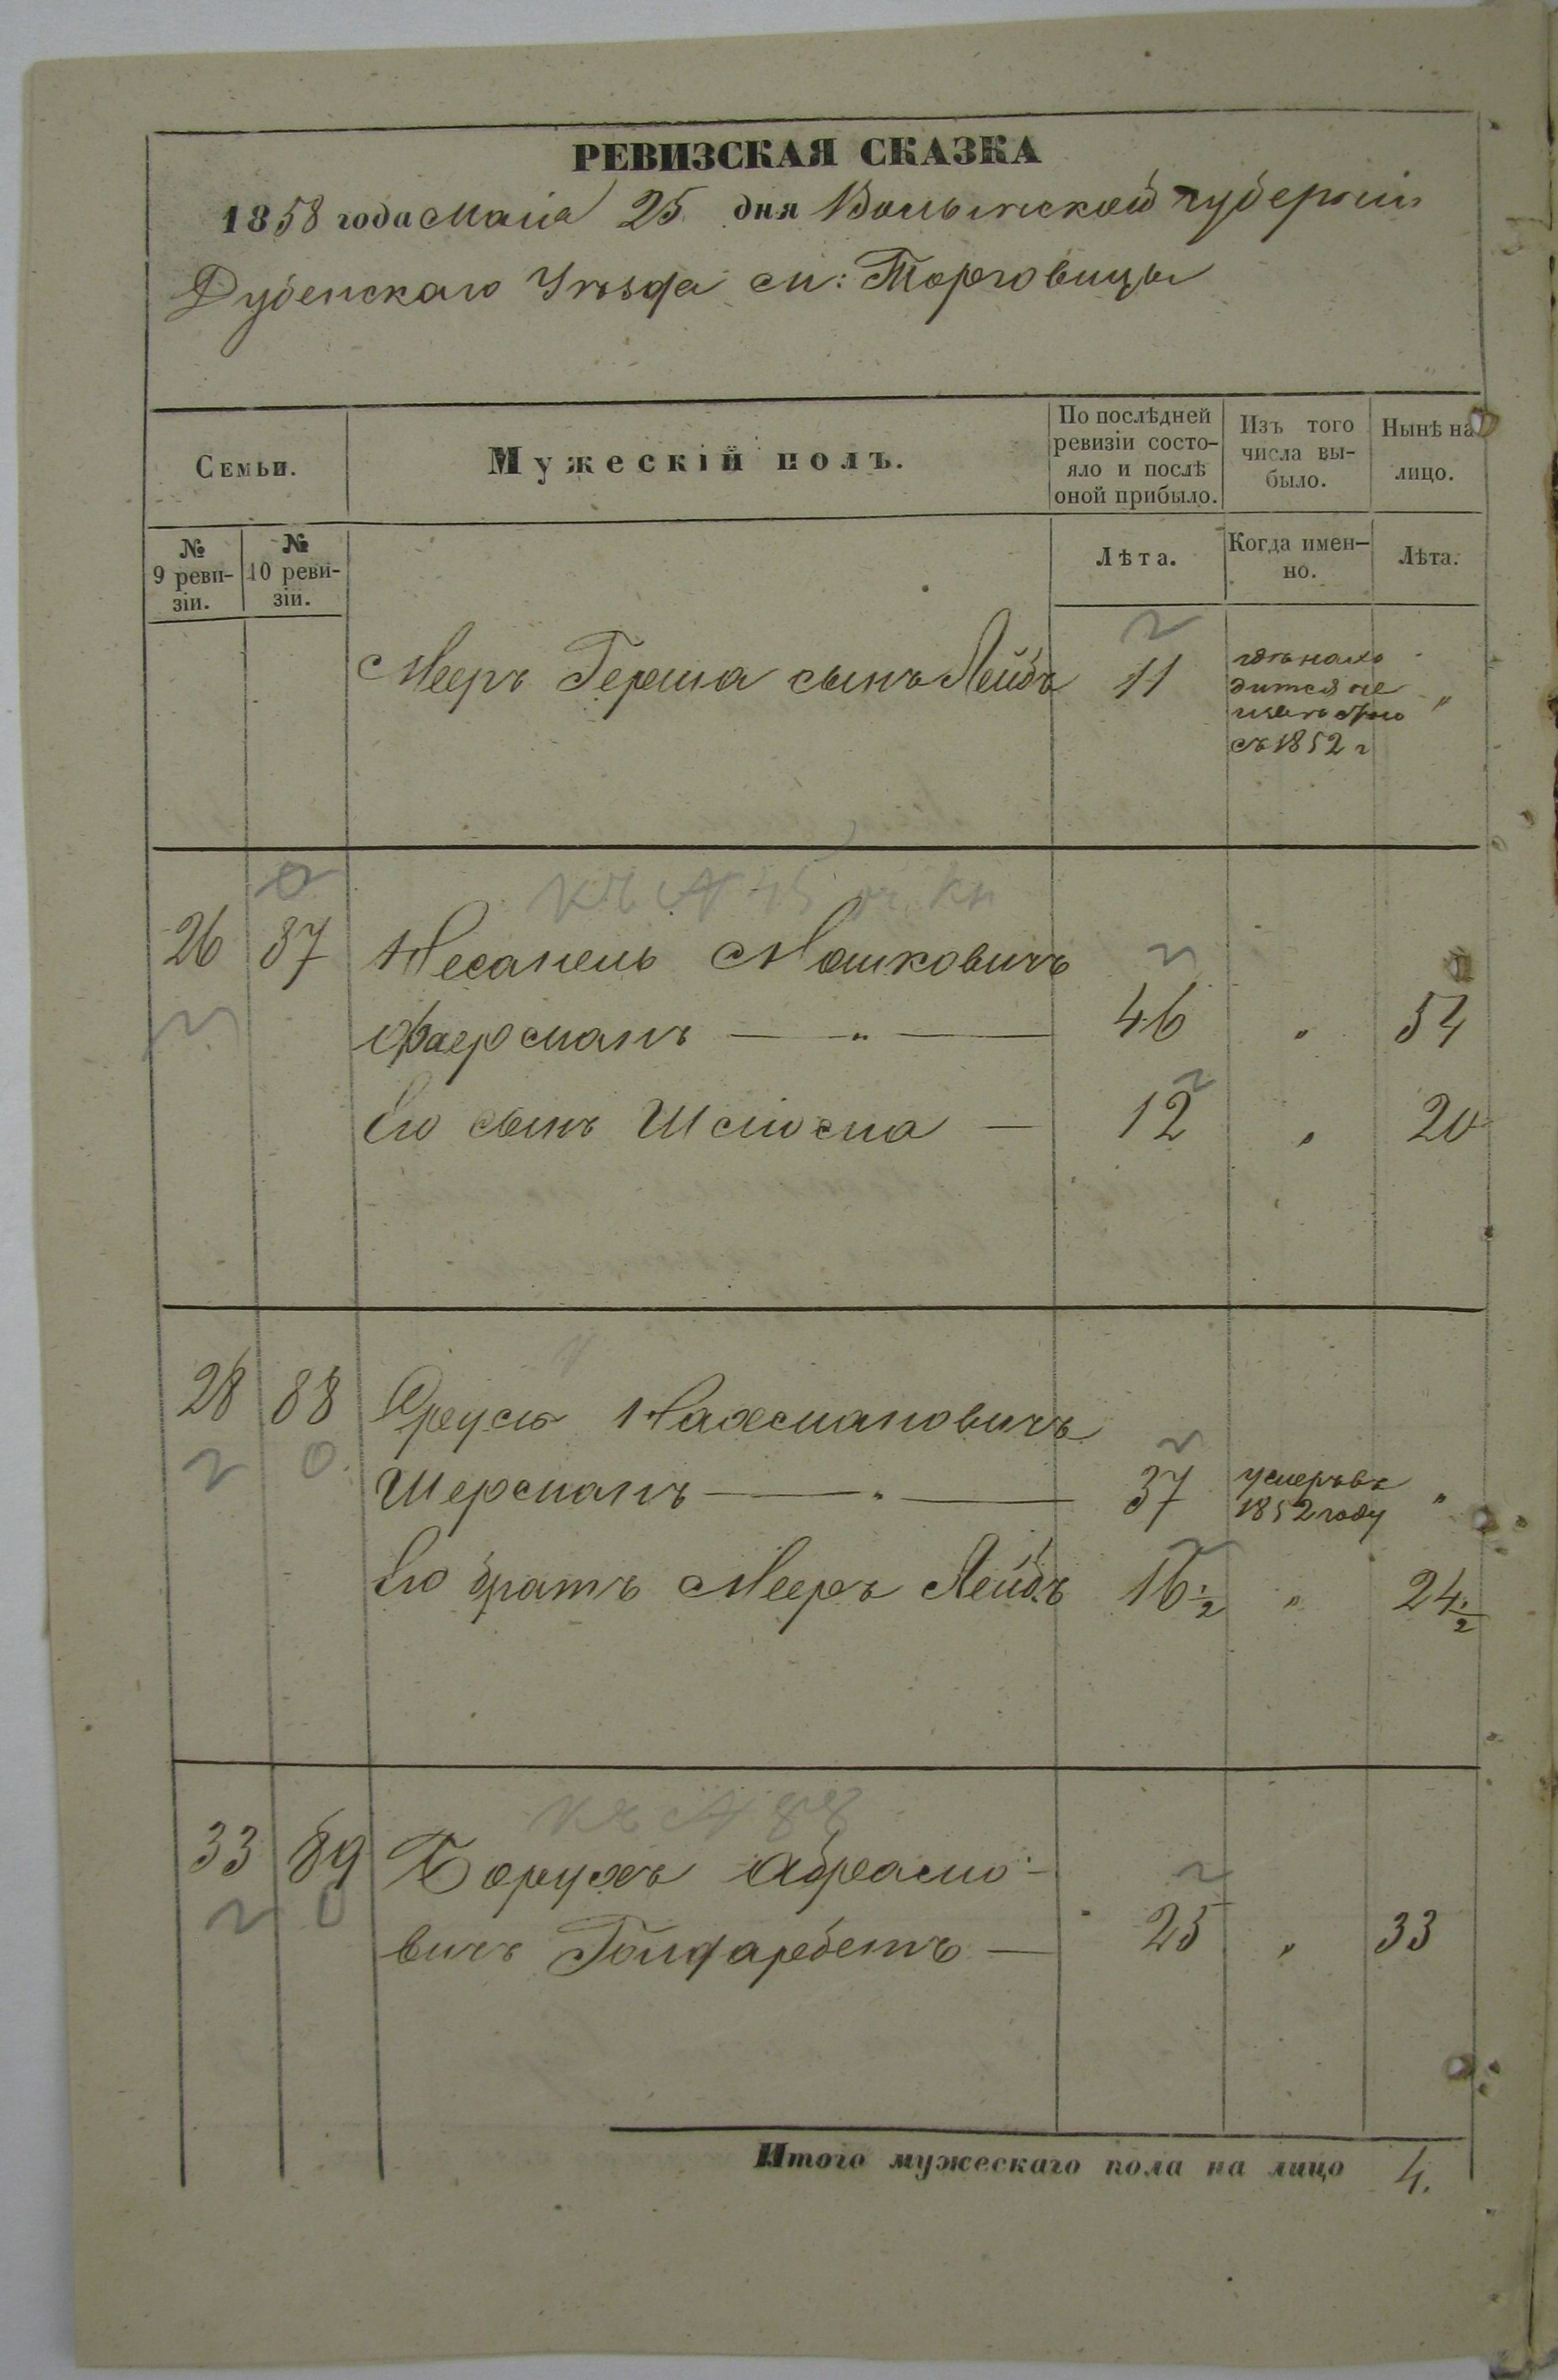 РЕВИЗСКАЯ СКАЗКА
1858 года Маія 25 дня Волынской губерніи
Дубенскаго Уѣзда м: Торговицы
Семьи.
Мужескій полъ.
По послѣдней ревизіи состо-
яло и послѣ
оной прибыло.
Изъ того
числа вы-
было.
Нынѣ на
лицо.
№
9 реви-
зіи.
№
10 реви-
зіи.
Лѣта.
Когда имен-
но.
Лѣта.
Мееръ Герша сынъ Лейбъ 11 гдѣ нахо
дится не
извѣстно "
съ 1852 г
26 87 Несанель Мошковичъ
Фаерманъ — " — 46 " 54
Его сынъ Шлиома — 12 " 20
28 88 Сруль Нахмановичъ
Шерманъ — " — 37 умеръ въ
1852 году "
Его братъ Мееръ Лейбъ 16 1/2 " 24 1/2
къ № 88
33 89 Борухъ Абрамо-
вичъ Гольдаребетъ — 25 " 33
Итого мужескаго пола на лицо 4.